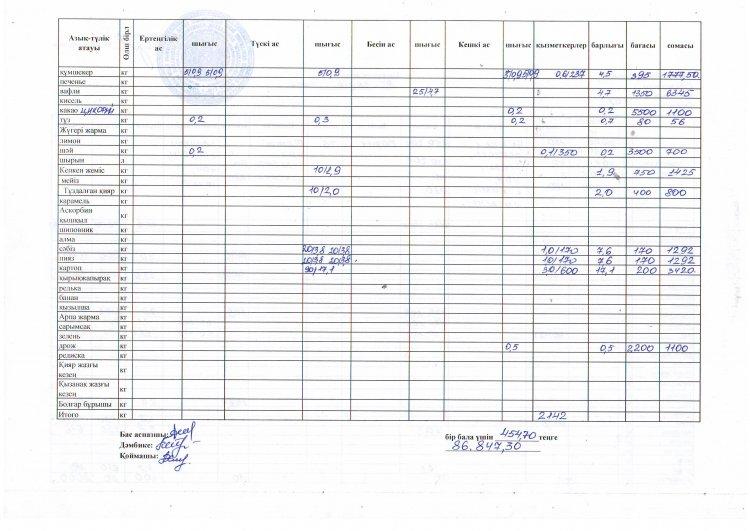 Азык-түлік атауы Өлш бірл Ертеңгілік ас шығыс Түскі ас шығыс Бесін ас шығыс Кешкі ас шығыс қызметкерлер барлығы бағасы сомасы
құмшекер кг 5/0,9 5/0,9 5/0,9 5/0,9 5/0,9 0,6/237 4,5 395 1777,50
печенье кг
вафли кг 25/4,7 4,7 1350 6345
кисель кг
какао цикорий кг 0,2 0,2 5500 1100
тұз кг 0,2 0,3 0,2 0,7 80 56
Жүгері жарма кг
лимон кг
шәй кг 0,2 0,1/350 0,2 3500 700
шырын л
Кепкен жеміс кг 10/1,9 1,9 750 1425
мейіз кг
Тұздалған қияр кг 10/2,0 2,0 400 800
карамель кг
Аскорбин қышқыл кг
шиповник кг
алма кг
сәбіз кг 20/3,8 20/3,8 1,0/170 7,6 170 1292
пияз кг 20/3,8 20/3,8 10/170 7,6 170 1292
картоп кг 90/17,1 3,0/600 17,1 200 3420
қырыққапырақ кг
редька кг
банан кг
қызылша кг
Арпа жарма кг
сарымсақ кг
зелень кг
дрож кг 0,5 0,5 2200 1100
редиска кг
Қияр жазғы кезең кг
Қызанақ жазғы кезең кг
Болгар бұрышы кг
Итого кг 2142
Бас аспазшы:
Дәмбике:
Қоймашы:
бір бала үшін 454,70 теңге
86.847,30